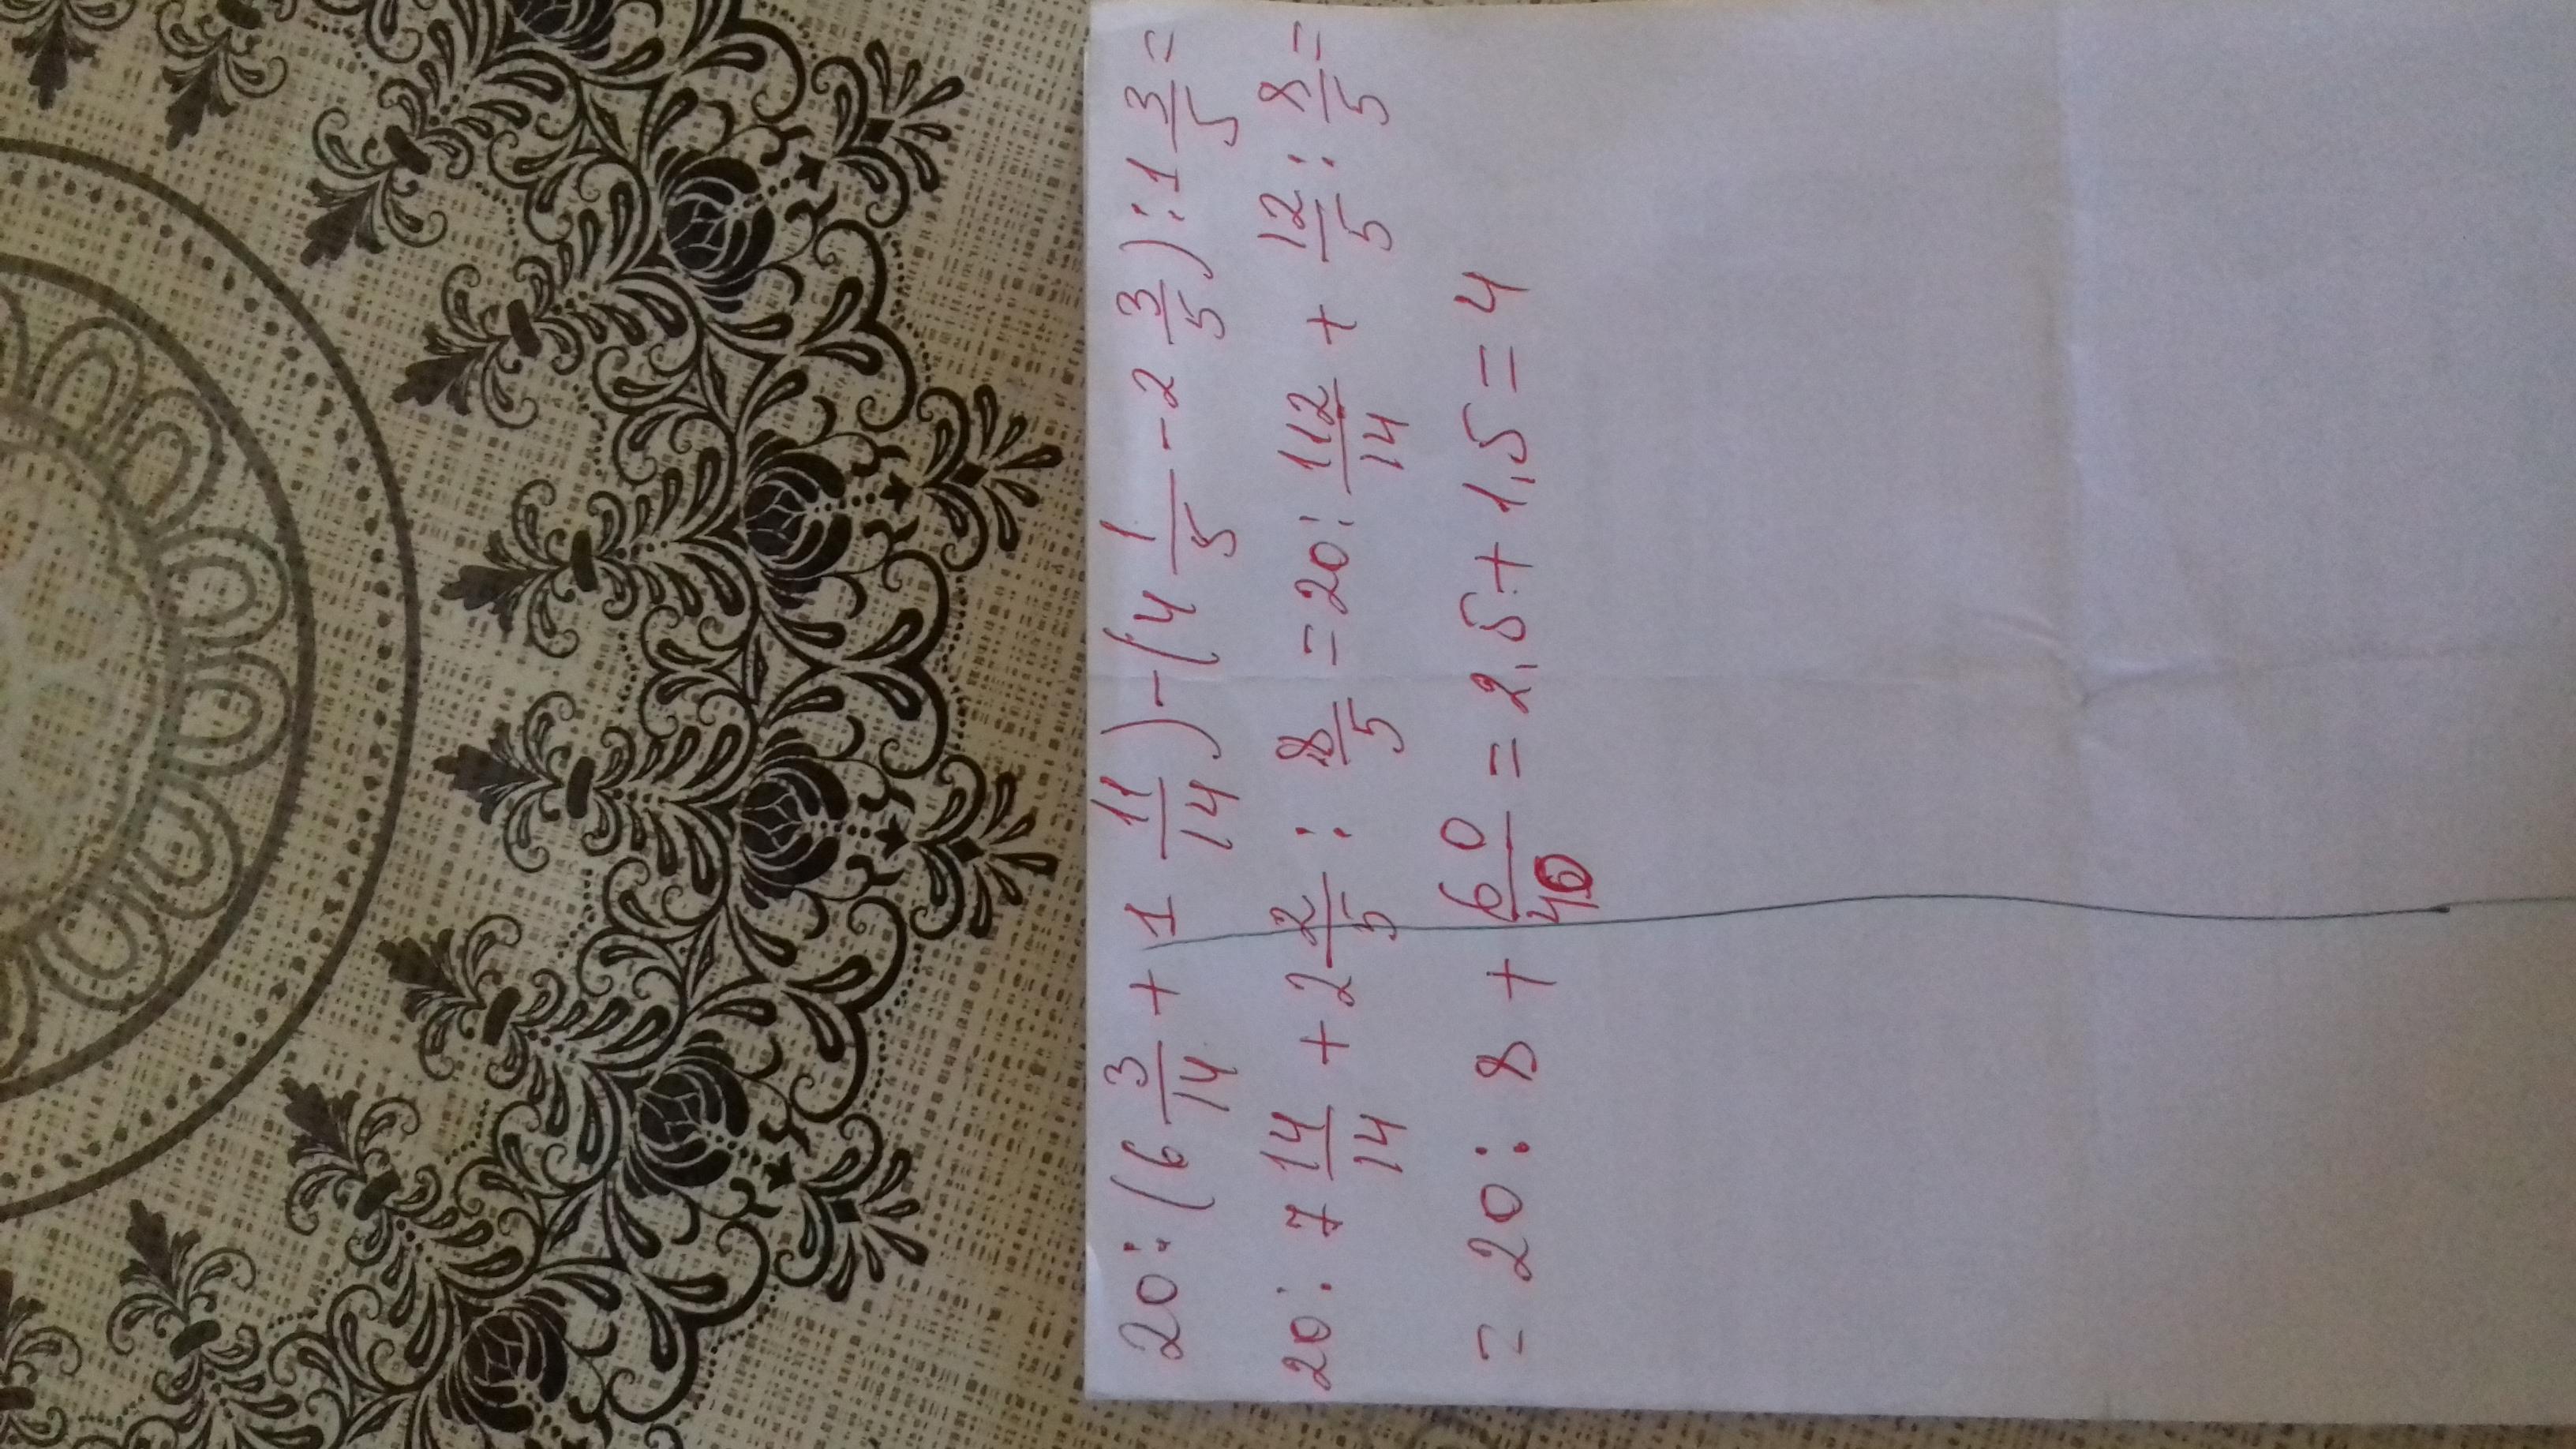 20 : (6 3/14 + 1 11/14) - (4 1/5 - 2 3/5) : 1 3/5 =
20 : 7 14/14 + 2 2/5 : 8/5 = 20 : 112/14 + 12/5 : 8/5 =
= 20 : 8 + 60/40 = 2,5 + 1,5 = 4